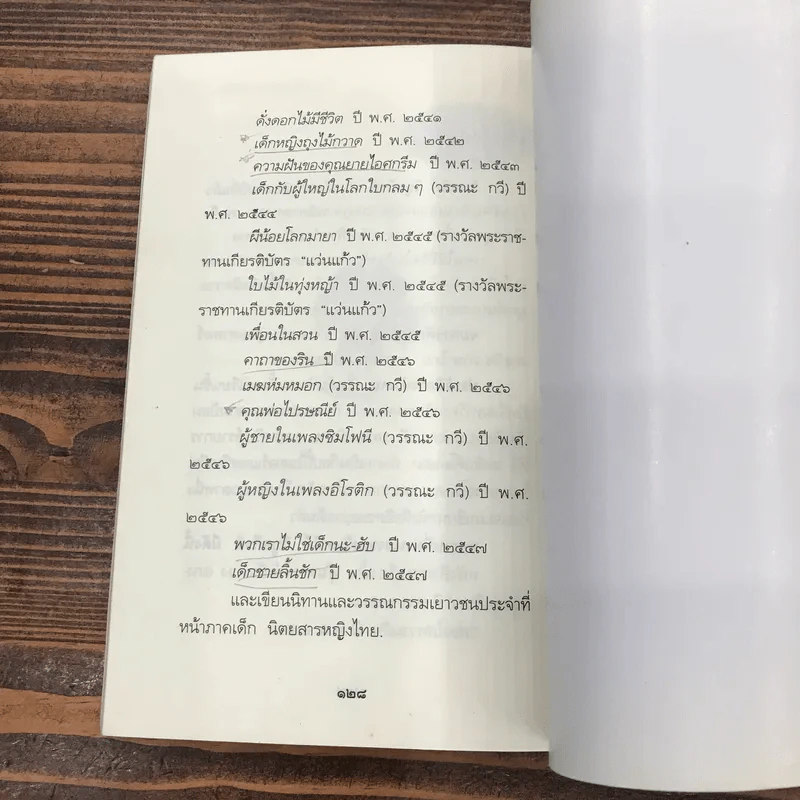 ดั่งดอกไม้มีชีวิต ปี พ.ศ. ๒๕๔๑
เด็กหญิงถุงไม้กวาด ปี พ.ศ. ๒๕๔๒
ความฝันของคุณยายไอศกรีม ปี พ.ศ. ๒๕๔๓
เด็กกับผู้ใหญ่ในโลกใบกลม ๆ (วรรณะ กวี) ปี
พ.ศ. ๒๕๔๔
ผีน้อยโลกมายา ปี พ.ศ. ๒๕๔๕ (รางวัลพระราช-
ทานเกียรติบัตร "แว่นแก้ว")
ใบไม้ในทุ่งหญ้า ปี พ.ศ. ๒๕๔๕ (รางวัลพระ-
ราชทานเกียรติบัตร "แว่นแก้ว")
เพื่อนในสวน ปี พ.ศ. ๒๕๔๕
คาถาของริน ปี พ.ศ. ๒๕๔๖
เมฆห่มหมอก (วรรณะ กวี) ปี พ.ศ. ๒๕๔๖
คุณพ่อไปรษณีย์ ปี พ.ศ. ๒๕๔๖
ผู้ชายในเพลงซิมโฟนี (วรรณะ กวี) ปี พ.ศ.
๒๕๔๖
ผู้หญิงในเพลงอิโรติก (วรรณะ กวี) ปี พ.ศ.
๒๕๔๖
พวกเราไม่ใช่เด็กนะ-ฮับ ปี พ.ศ. ๒๕๔๗
เด็กชายลิ้นชัก ปี พ.ศ. ๒๕๔๗
และเขียนนิทานและวรรณกรรมเยาวชนประจำที่
หน้าภาคเด็ก นิตยสารหญิงไทย.
๑๒๘